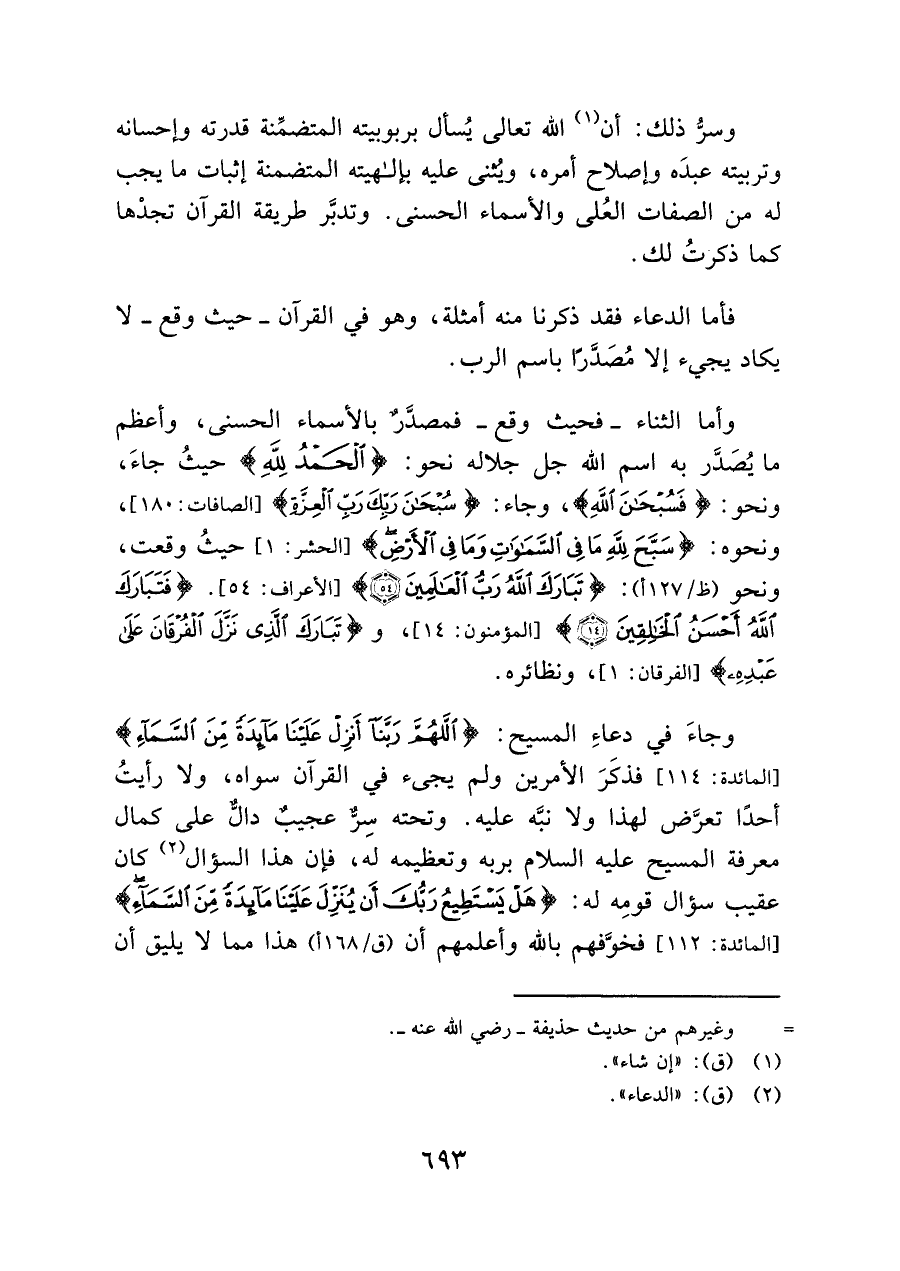 وسرُّ ذلك: أن(١) الله تعالى يُسأل بربوبيته المتضمِّنة قدرته وإحسانه
وتربيته عبدَه وإصلاح أمره، ويُثنى عليه بإلٰهيته المتضمنة إثبات ما يجب
له من الصفات العُلى والأسماء الحسنى. وتدبَّر طريقة القرآن تجدْها
كما ذكرتُ لك.
فأما الدعاء فقد ذكرنا منه أمثلة، وهو في القرآن ـ حيث وقع ـ لا
يكاد يجيء إلا مُصَدَّرًا باسم الرب.
وأما الثناء ـ فحيث وقع ـ فمصدَّرٌ بالأسماء الحسنى، وأعظم
ما يُصَدَّر به اسم الله جل جلاله نحو: ﴿ٱلْحَمْدُ لِلَّهِ﴾ حيثُ جاءَ،
ونحو: ﴿فَسُبْحَٰنَ ٱللَّهِ﴾، وجاء: ﴿سُبْحَٰنَ رَبِّكَ رَبِّ ٱلْعِزَّةِ﴾ [الصافات: ١٨٠]،
ونحوه: ﴿سَبَّحَ لِلَّهِ مَا فِى ٱلسَّمَٰوَٰتِ وَمَا فِى ٱلْأَرْضِۖ﴾ [الحشر: ١] حيثُ وقعت،
ونحو (ظ/١٢٧أ): ﴿تَبَارَكَ ٱللَّهُ رَبُّ ٱلْعَٰلَمِينَ ٥٤﴾ [الأعراف: ٥٤]. ﴿فَتَبَارَكَ
ٱللَّهُ أَحْسَنُ ٱلْخَٰلِقِينَ ١٤﴾ [المؤمنون: ١٤]، و ﴿تَبَارَكَ ٱلَّذِى نَزَّلَ ٱلْفُرْقَانَ عَلَىٰ
عَبْدِهِۦ﴾ [الفرقان: ١]، ونظائره.
وجاءَ في دعاءِ المسيح: ﴿ٱللَّهُمَّ رَبَّنَآ أَنزِلْ عَلَيْنَا مَآئِدَةً مِّنَ ٱلسَّمَآءِ﴾
[المائدة: ١١٤] فذكَرَ الأمرين ولم يجىء في القرآن سواه، ولا رأيتُ
أحدًا تعرَّض لهذا ولا نبَّه عليه. وتحته سِرٌّ عجيبٌ دالٌّ على كمال
معرفة المسيح عليه السلام بربه وتعظيمه له، فإن هذا السؤال(٢) كان
عقيب سؤال قومِه له: ﴿هَلْ يَسْتَطِيعُ رَبُّكَ أَن يُنَزِّلَ عَلَيْنَا مَآئِدَةً مِّنَ ٱلسَّمَآءِۖ﴾
[المائدة: ١١٢] فخوَّفهم بالله وأعلمهم أن (ق/١٦٨أ) هذا مما لا يليق أن
= وغيرهم من حديث حذيفة ـ رضي الله عنه ـ.
(١) (ق): «إن شاء».
(٢) (ق): «الدعاء».
٦٩٣